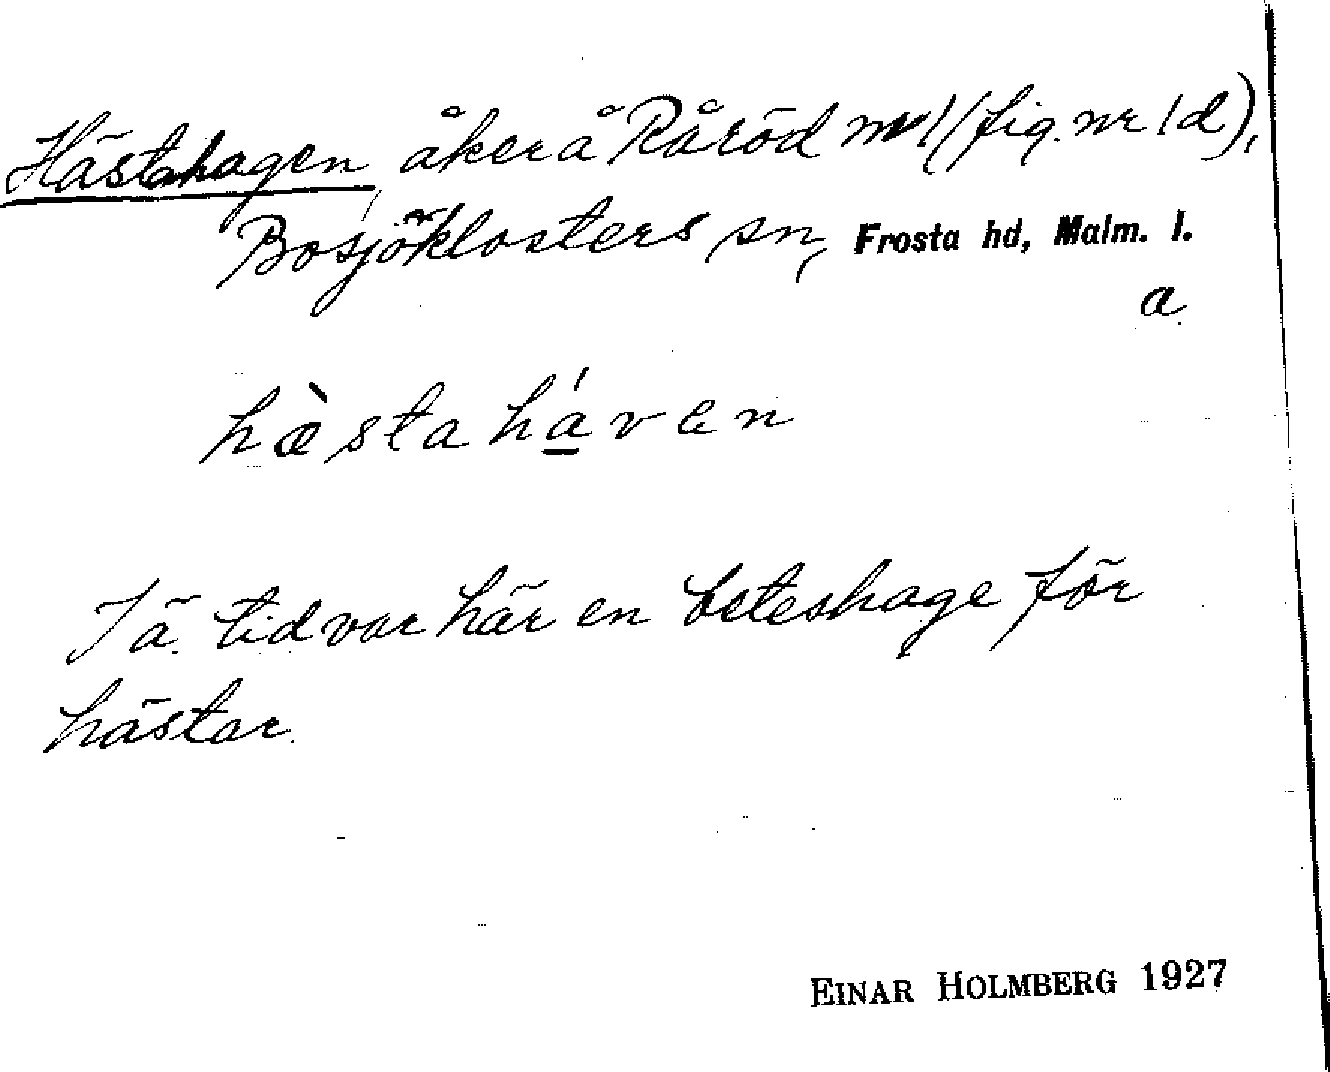 Hästahagen, åker å Råröd nr 1 (fig. nr 1 d),
Bosjöklosters sn, Frosta hd, Malm. l.
a.
hæ̀staháven
I ä. tid var här en beteshage för
hästar.
EINAR HOLMBERG 1927